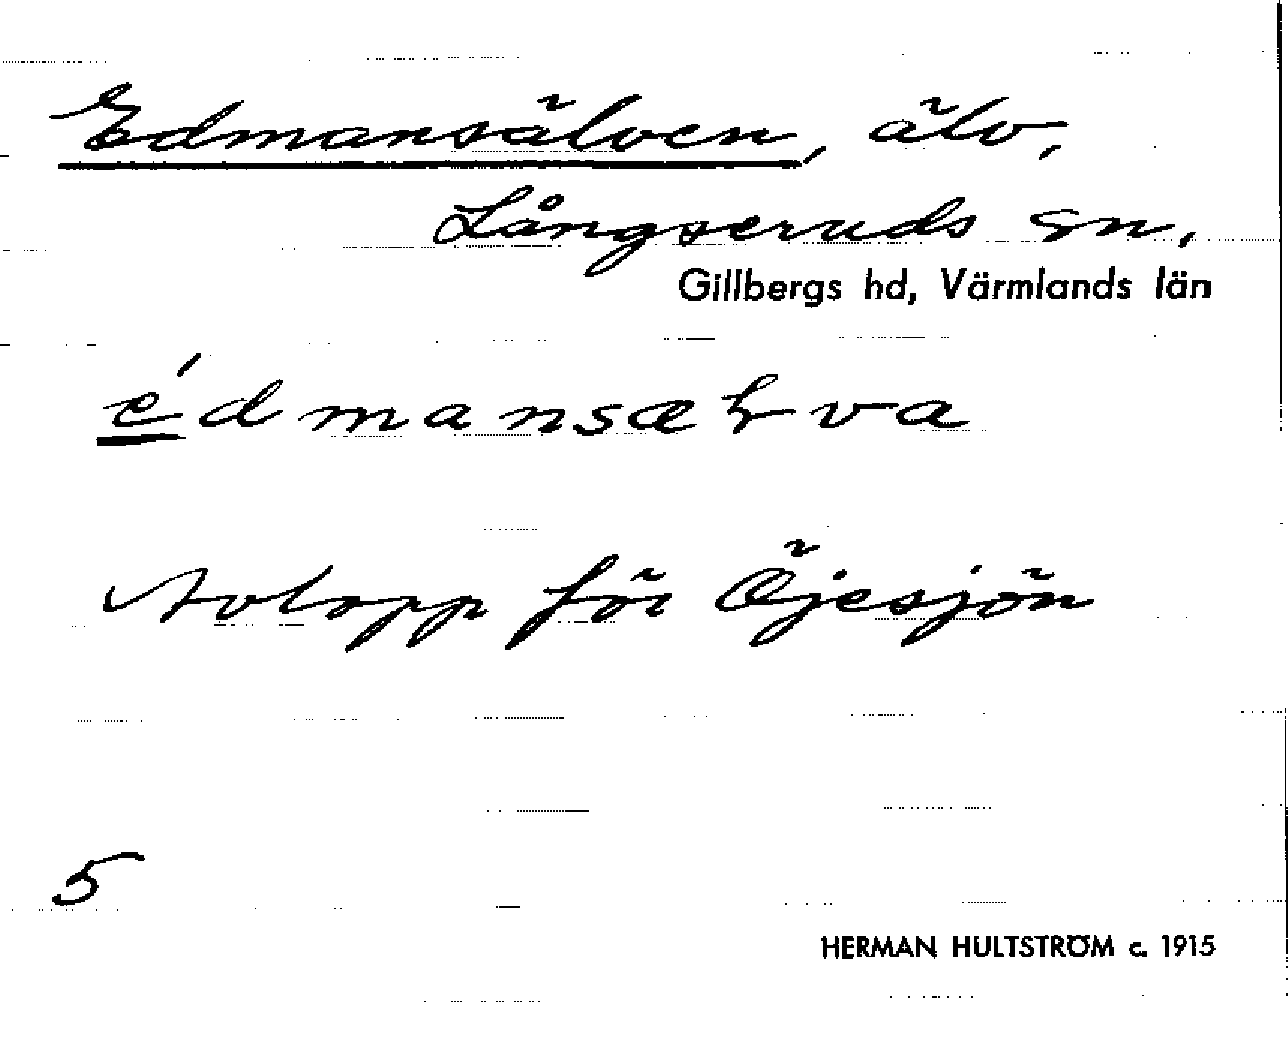 Edmansälven, älv,
Långseruds sn.
Gillbergs hd, Värmlands län
é d m a n s æ ɫ v a
Avlopp för Öjesjön
5
HERMAN HULTSTRÖM c. 1915